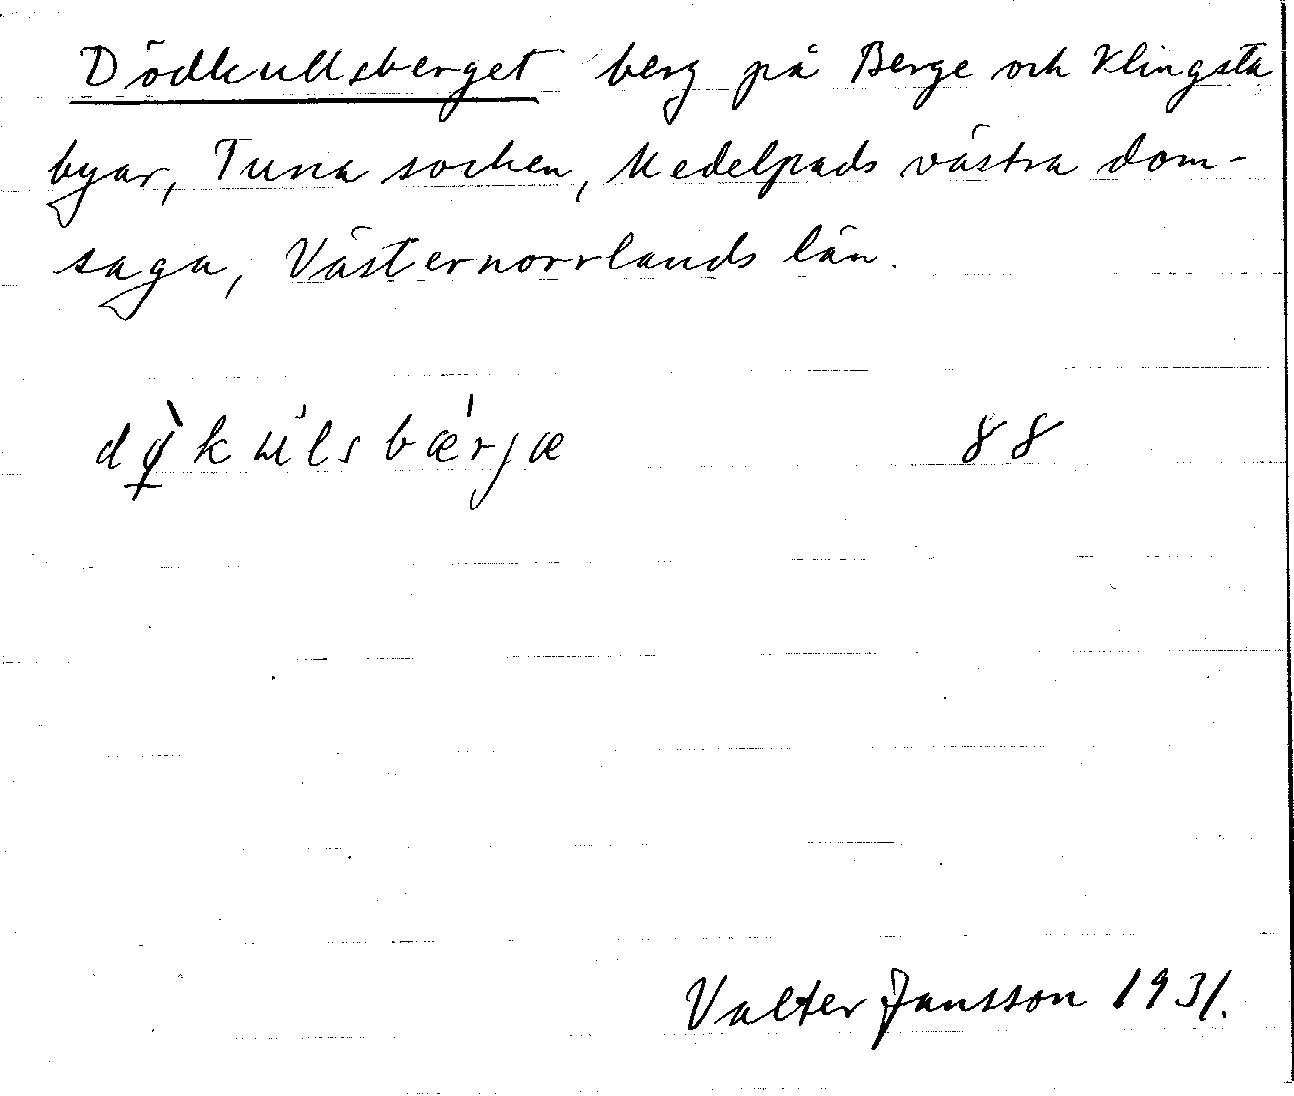 Dödkullsberget berg på Berge och Klingsta
byar, Tuna socken, Medelpads västra dom-
saga, Västernorrlands län.
dø̀kulsbærjæ 88
Valter Jansson 1931.